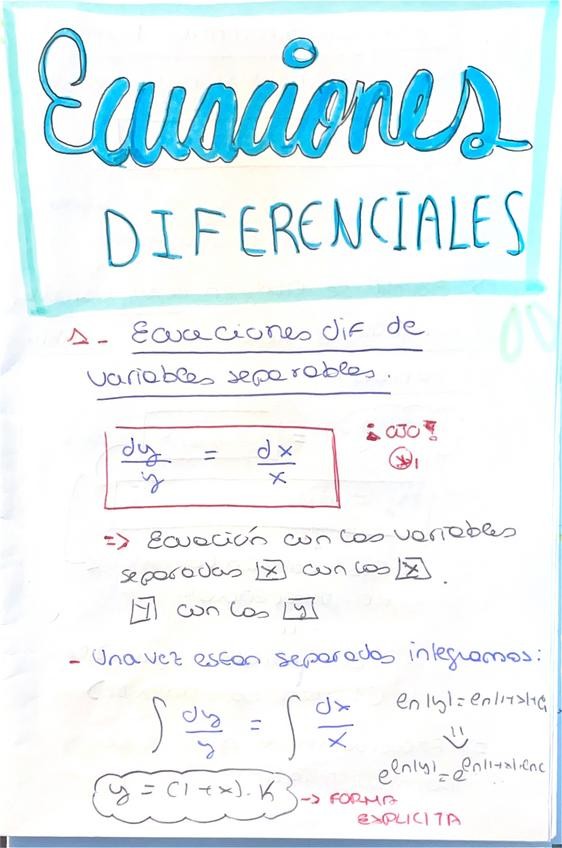 Ecuaciones
DIFERENCIALES
1- Ecuaciones dif de
variables separables.
dy/y = dx/x
¡OJO!
*1
=> Ecuación con las variables
separadas x con las x.
y con las y
- Una vez estan separadas integramos:
∫ dy/y = ∫ dx/x
ln|y| = ln|1+x|+C1
e^ln|y| = e^ln|1+x|+lnc
y = (1+x).K -> FORMA
EXPLICITA